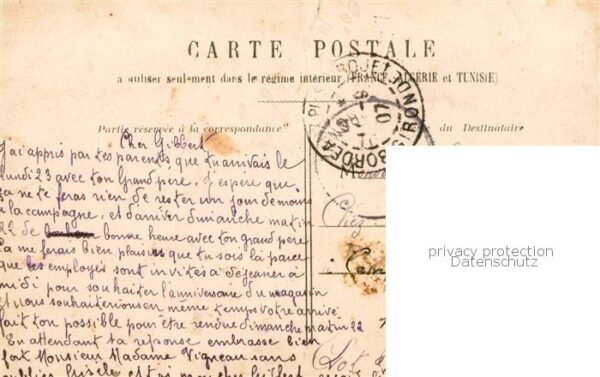 CARTE POSTALE
à utiliser seulement dans le régime intérieur (FRANCE, ALGERIE et TUNISIE)
Partie réservée à la correspondance
du Destinataire
BORDEAUX
Cher Gilbert
J'ai appris par tes parents que tu arrivais le
lundi 23 avec ton Grand père, J'espère que
ça ne te feras rien de rester un jour de moins
a la campagne, et d'arriver dimanche matin
22 de bonne heure avec ton grand père
Ça me ferais bien plaisir que tu sois là parce
que les employés sont invités a déjeuner à
midi pour souhaiter l'anniversaire du magasin
Et nous souhaiterions en même temps votre arrivé
fait ton possible pour être rendue dimanche matin 22
En attendant ta réponse embrasse bien
fort Monsieur Madame Vigneau sans
oublier
Chez
Lot
privacy protection
Datenschutz